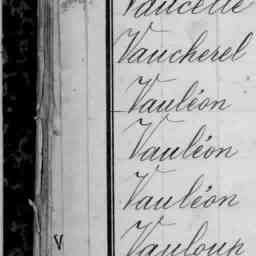 Vaucelle
Vaucherel
Vauléon
Vauléon
Vauléon
V Vauloup